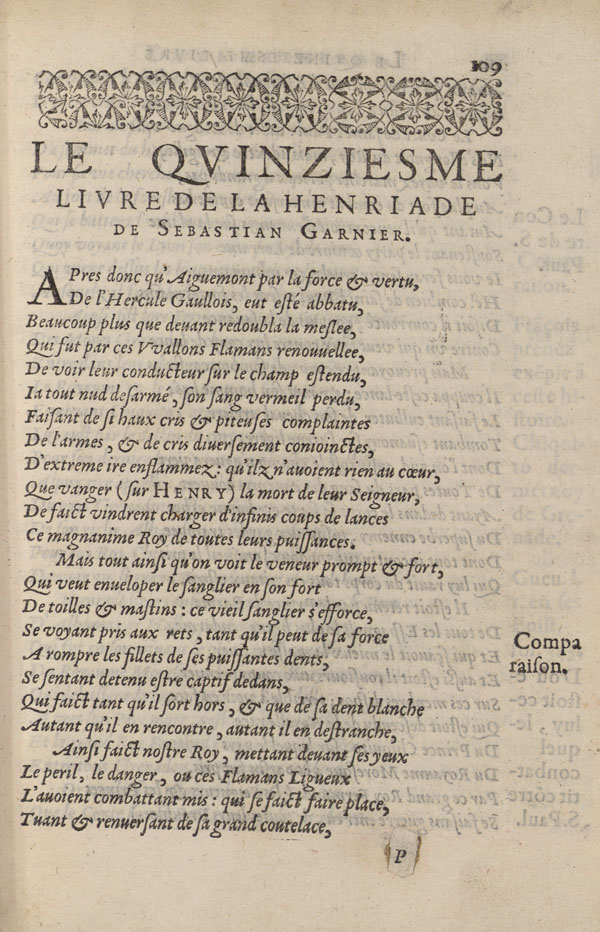 109
LE QVINZIESME
LIVRE DE LA HENRIADE
DE SEBASTIAN GARNIER.
APres donc qu'Aiguemont par la force & vertu,
De l'Hercule Gaullois, eut esté abbatu,
Beaucoup plus que deuant redoubla la meslee,
Qui fut par ces Vvallons Flamans renouuellee,
De voir leur conducteur sur le champ estendu,
Ia tout nud desarmé, son sang vermeil perdu,
Faisant de si haux cris & piteuses complaintes
De l'armes, & de cris diuersement conioinctes,
D'extreme ire enflammez: qu'ilz n'auoient rien au cœur,
Que vanger (sur HENRY) la mort de leur Seigneur,
De faict vindrent charger d'infinis coups de lances
Ce magnanime Roy de toutes leurs puissances.
Mais tout ainsi qu'on voit le veneur prompt & fort,
Qui veut enueloper le sanglier en son fort
De toilles & mastins: ce vieil sanglier s'efforce,
Se voyant pris aux rets, tant qu'il peut de sa force
A rompre les fillets de ses puissantes dents,
Se sentant detenu estre captif dedans,
Qui faict tant qu'il sort hors, & que de sa dent blanche
Autant qu'il en rencontre, autant il en destranche,
Ainsi faict nostre Roy, mettant deuant ses yeux
Le peril, le danger, ou ces Flamans Ligueux
L'auoient combattant mis: qui se faict faire place,
Tuant & renuersant de sa grand coutelace,
Compa
raison.
P